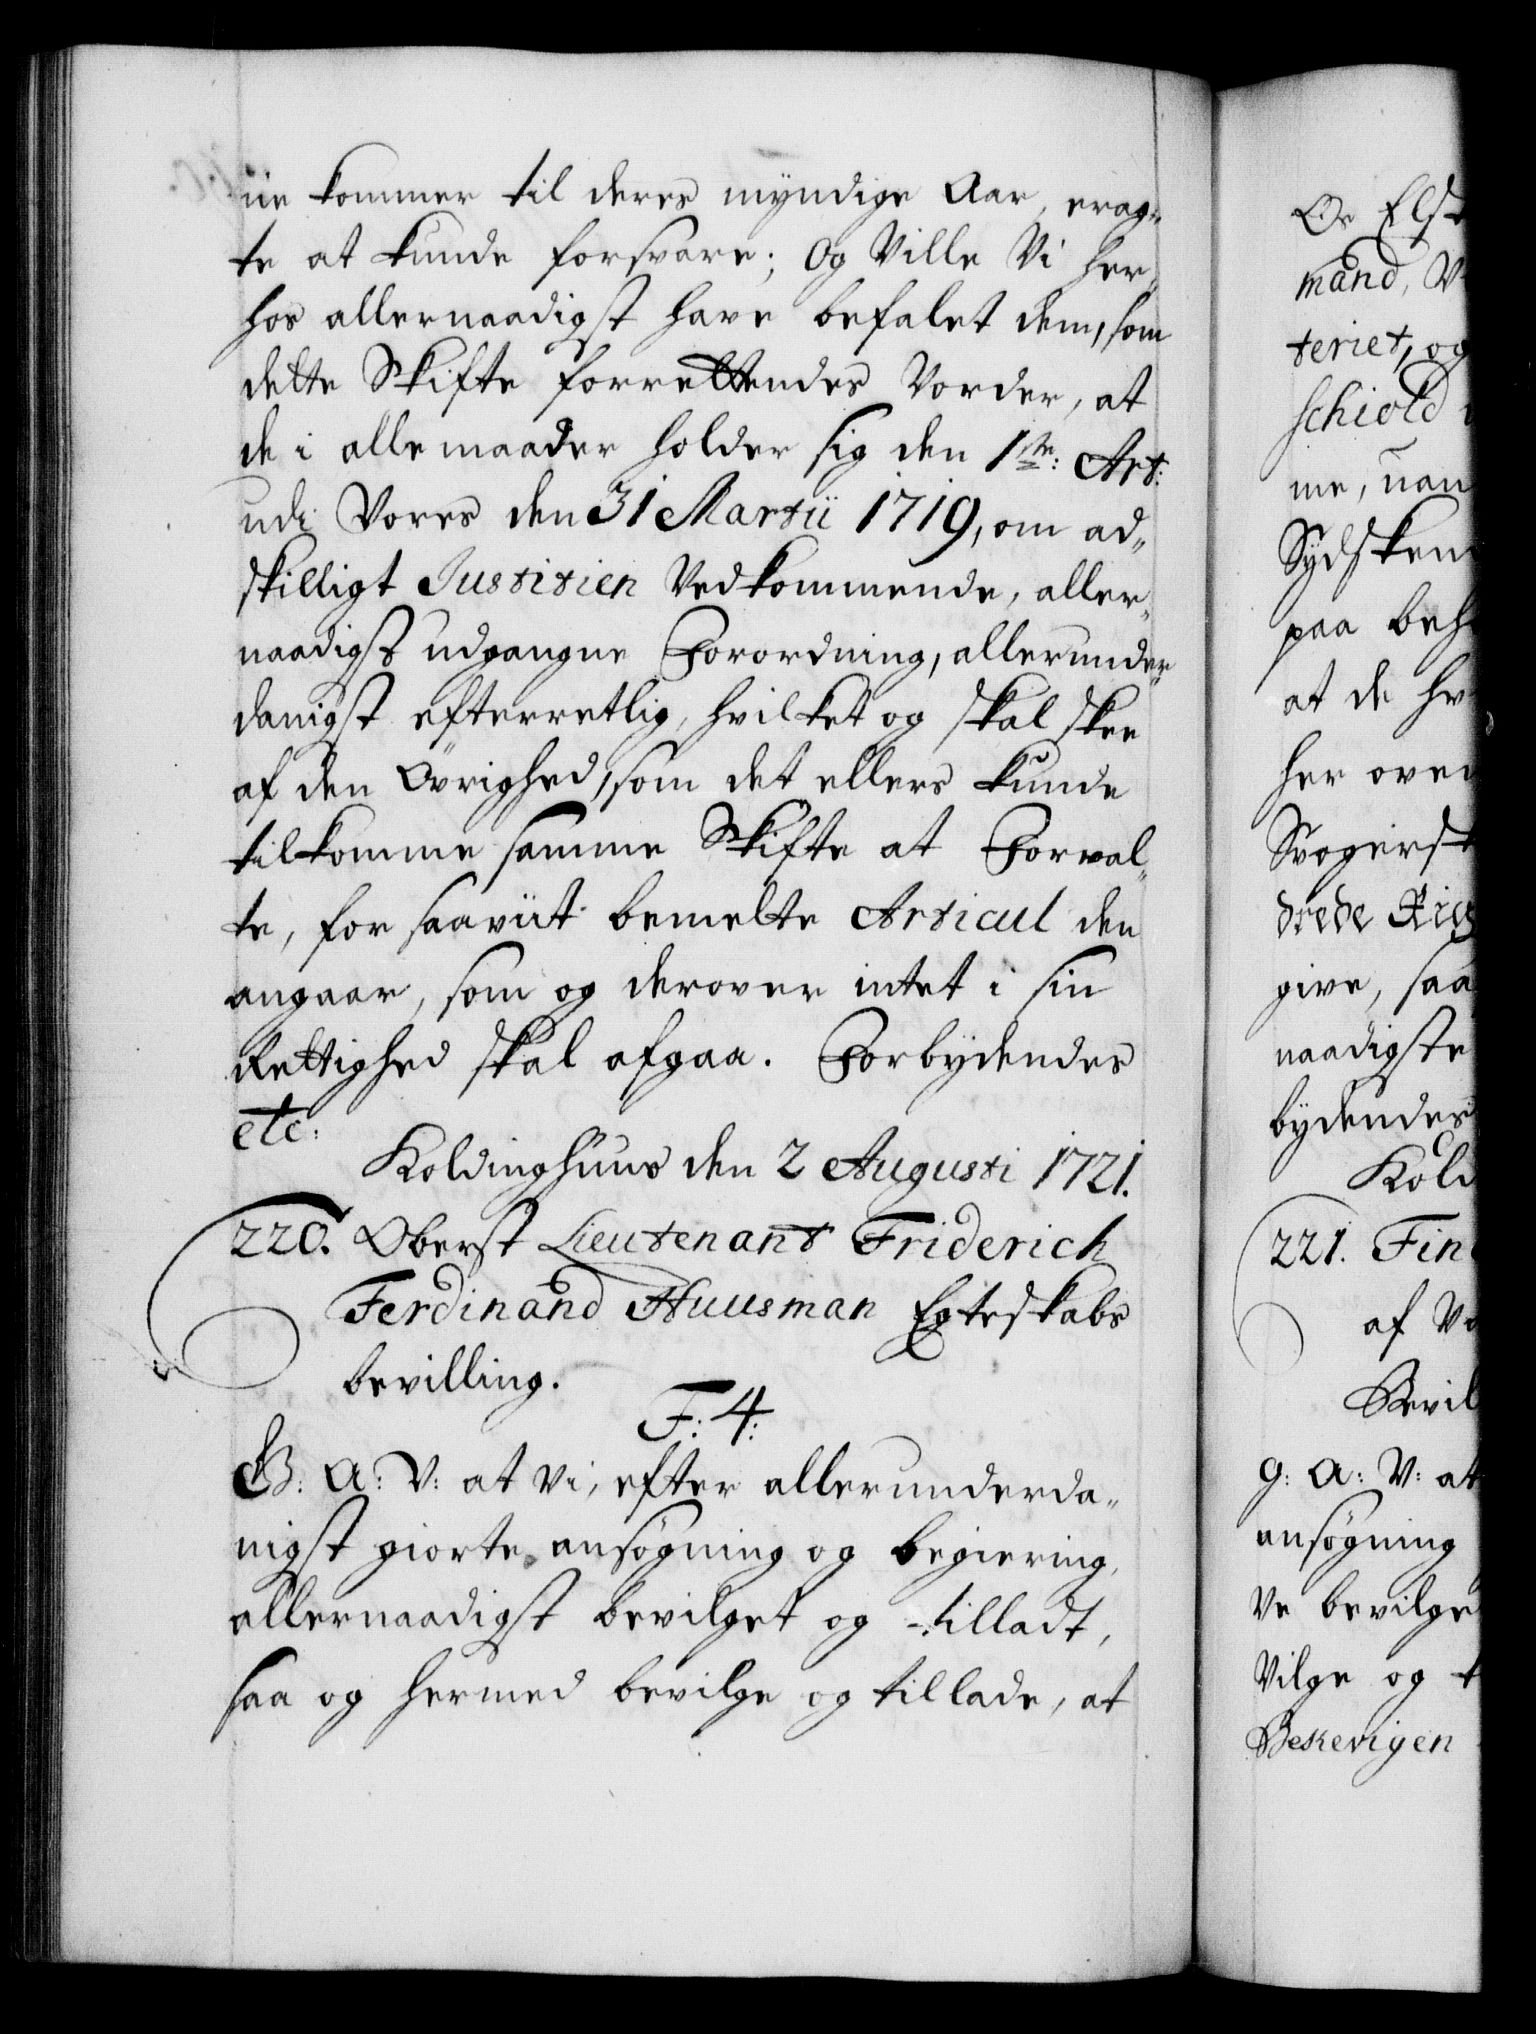 ne kommer til deres myndige Aar, erag„
te at kunde forsvare; Og Ville Vi her„
hos allernaadigst have befalet dem, som
dette Skifte forrettendes Vorder, at
de i alle maader holder sig den 1ste: Art:
udi Vores den 31 Martii 1719, om ad„
skilligt Justitien Vedkommende, aller„
naadigst udgangne Forordning, allerunder„
danigst efterretlig, hvilket og skal skee
af den Øvrighed, som det ellers kunde
tilkomme samme Skifte at Forval„
te, for saaviit bemelte Articul den
angaar, som og derover intet i sin
Rettighed skal afgaa. Forbydendes
etc:
Koldinghuus den 2 Augusti 1721.
220. Oberst Lieutenant Friderich
Ferdinand Huusman Egteskabs
bevilling.
F: 4:
G: A: V: at Vi, efter allerunderda„
nigst giorte ansøgning og begiering,
allernaadigst bevilget og tilladt,
saa og hermed bevilge og tillade, at
mand, V
teriet, og
schiold
me, uan
Sydsken
paa beh
at de hv
her oven
Svogerst
drede Rix
give, saa
naadigste
bydendes
Kold
221. Fin
af Vo
Bevil
G: A: V: at
ansøgning
Ve bevilge
Vilge og t